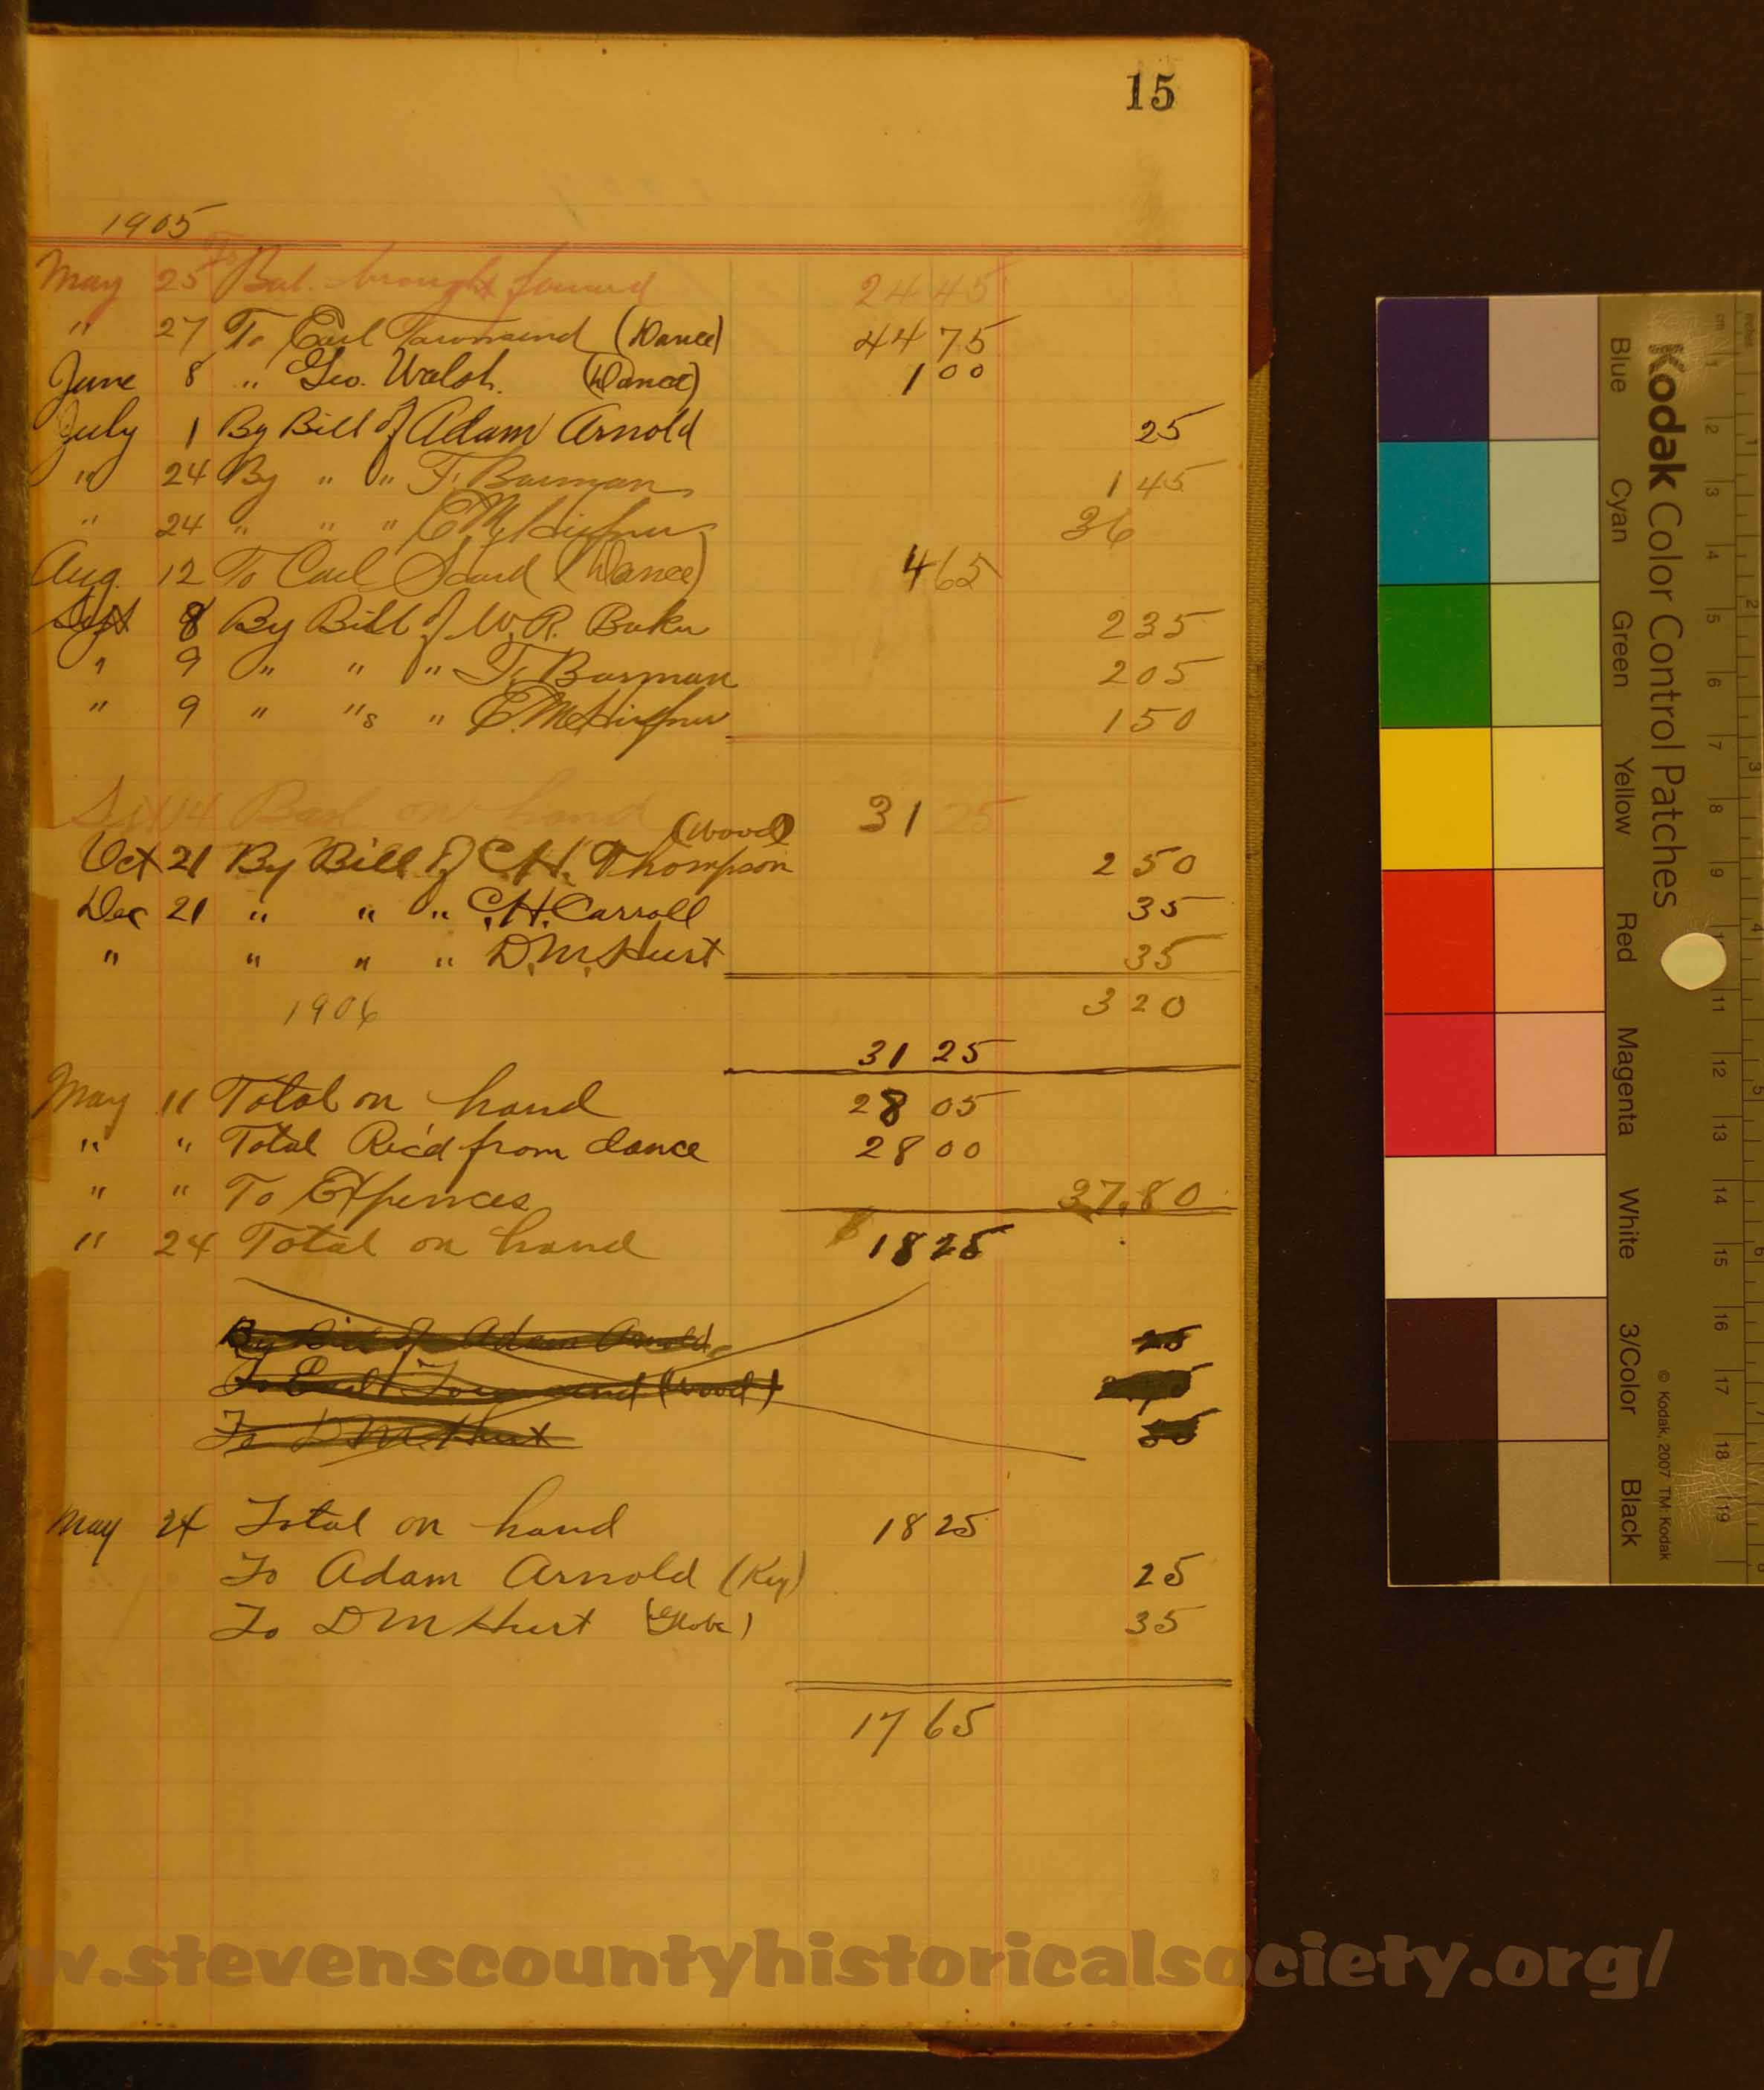 15
1905
May 25 To Bal. brought forward 24 45
" 27 To Earl Townsend (Dance) 44 75
June 8 " Geo. Walsh. (Dance) 1 00
July 1 By Bill of Adam Arnold 25
" 24 By " " F. Barman 1 45
" 24 " " " 36
Aug. 12 To Carl (Dance) 4 65
Sept 8 By Bill of W.R. Baker 2 35
" 9 " " " F. Barman 2 05
" 9 " "s " 1 50
Sept 14 Bal on hand 31 25
(Wood)
Oct 21 By Bill of C.H. Thompson 2 50
Dec 21 " " " C.H. Carroll 35
" " " " D.M. Hurt 35
1906 3 20
31 25
May 11 Total on hand 28 05
" " Total Rec'd from dance 28 00
" " To Expences 37.80
" 24 Total on hand 18 25
By Bill of Adam Arnold 25
To Earl Townsend (Wood)
To D M Hurt
May 24 Total on hand 18 25
To Adam Arnold (Key) 25
To D M Hurt (Globe) 35
17 65
w.stevenscountyhistoricalsociety.org/
Kodak Color Control Patches
Blue Cyan Green Yellow Red Magenta White 3/Color Black
© Kodak, 2007 TM: Kodak
cm 1 2 3 4 5 6 7 8 9 11 12 13 14 15 16 17 18 19
inches 1 2 3 4 5 6